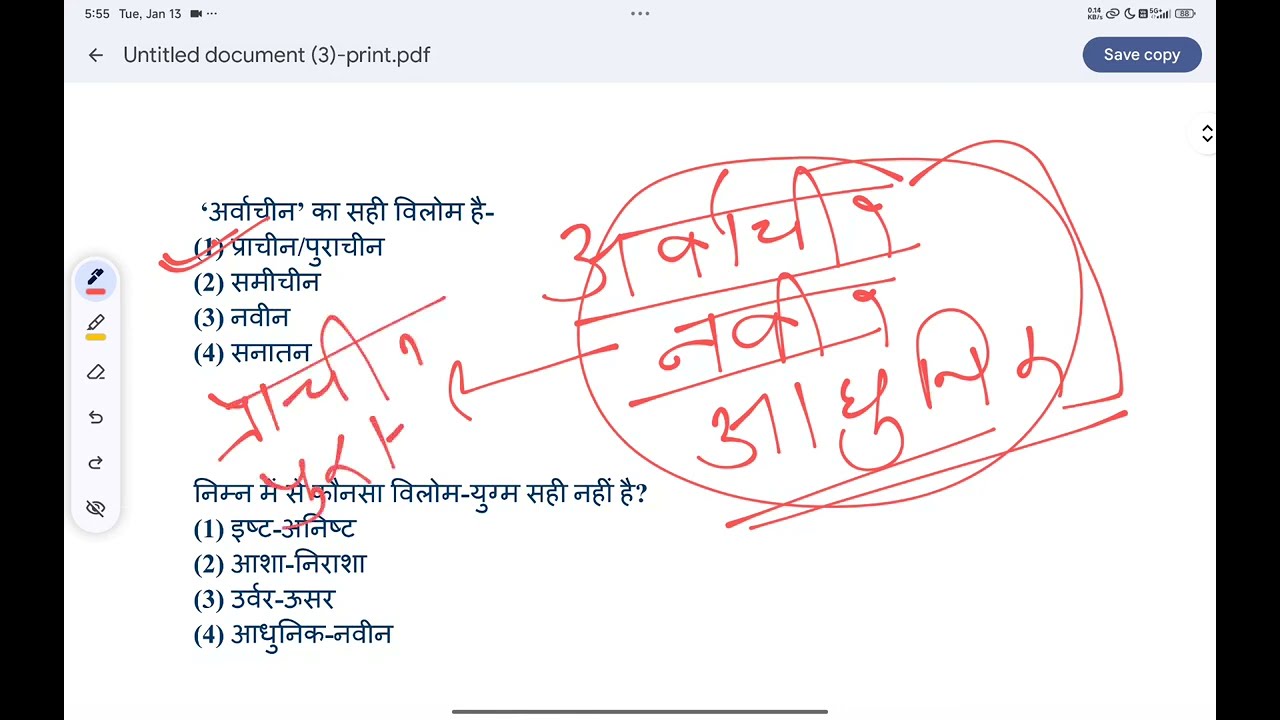 5:55 Tue, Jan 13
0.14 KB/s 5G+ 88
Untitled document (3)-print.pdf
Save copy
‘अर्वाचीन’ का सही विलोम है-
(1) प्राचीन/पुराचीन
(2) समीचीन
(3) नवीन
(4) सनातन
अर्वाचीन
नवीन
आधुनिक
प्राचीन
पुरा
निम्न में से कौनसा विलोम-युग्म सही नहीं है?
(1) इष्ट-अनिष्ट
(2) आशा-निराशा
(3) उर्वर-ऊसर
(4) आधुनिक-नवीन